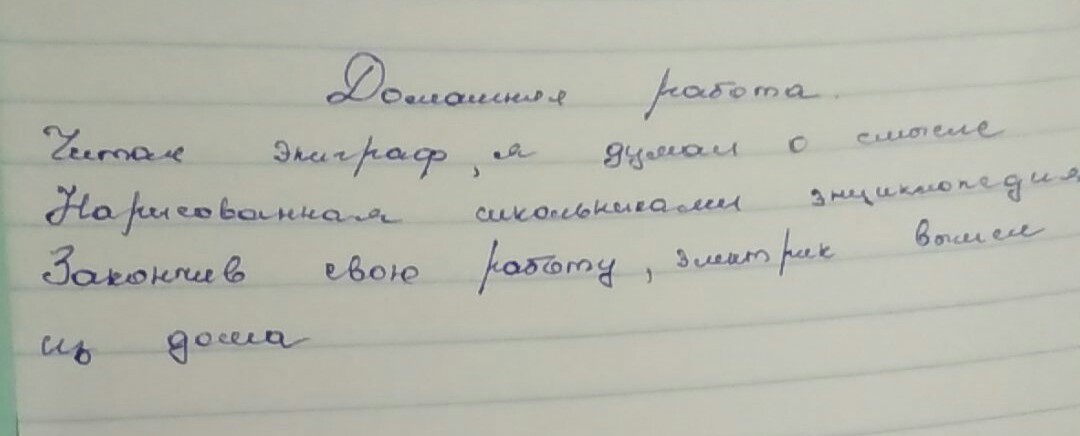 Домашняя работа.
Читая эпиграф, я думал о смысле
Нарисованная школьниками энциклопедия
Закончив свою работу, электрик вышел
из дома